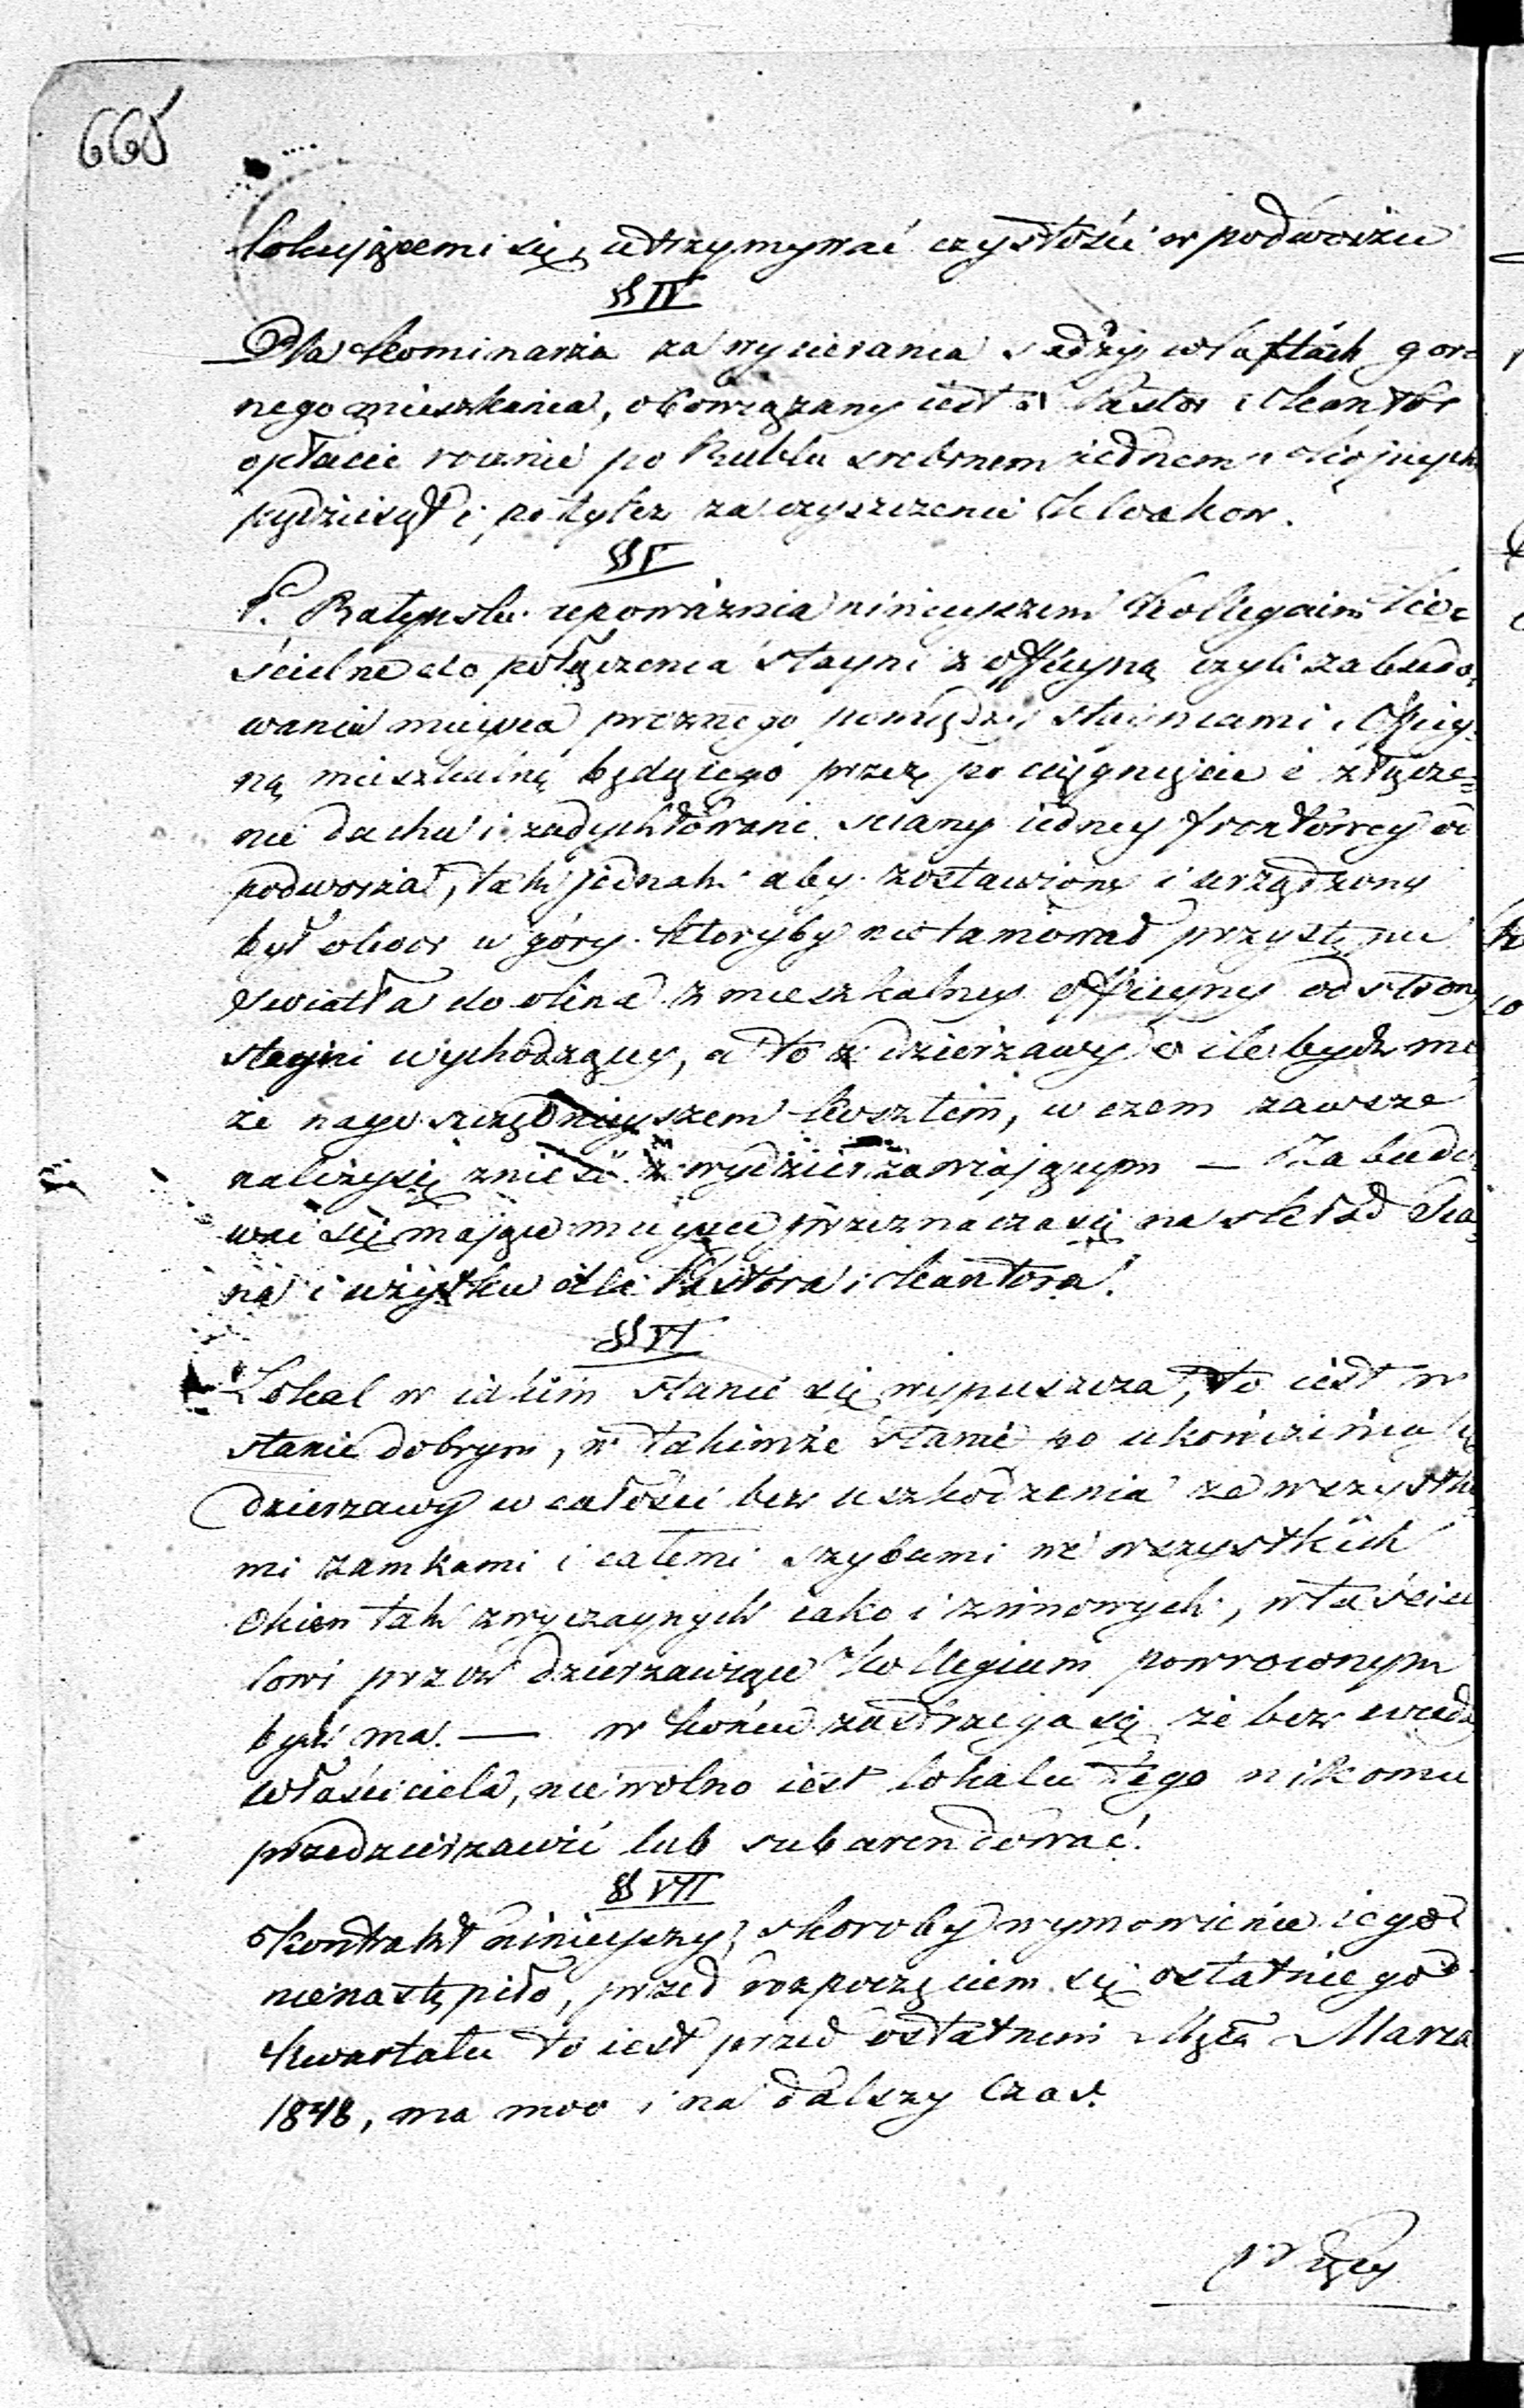 665
lokującemi się, utrzymywać czystość w podwórzu
§§ IV
Dla Kominiarza za wycierania sadzy w laftach gor=
nego mieszkania, obowiązany iest Pastor i Kantor
opłacić rocznie po Rublu srebrnem iednem i kopiejek
pędziesiąt i, po tyleż za czyszczenie Kloakow.
§§ V
P. Ratyński upoważnia niniejszem Kollegium Ko=
ścielne do połączenia stayni z officyną czyli zabudo,
wania mieysca proznego pomiędzy stayniami i Officy=
ną mieszkalną będącego przez pociągnięcie i złącze=
nie dachu i zadychtowanie sciany iedney frontowey od
podworza, tak jednak aby zostawiony i urządzony
był otwor w góry któryby nie tamował przystępu
swiatła do okna z mieszkalney officyny od strony
stayni wychodzący, a to z dzierzawy o ile bydz mo
że nayoszczędnieyszem kosztem, w czem zawsze
należy się znieść z wydzierżawiającym — Zabudo
wać się mające mieysce przeznacza się na skład Sia
na i użytku dla Pastora i Kantora.
§§ VI
Lokal w iakim stanie się wypuszcza, to iest w
stanie dobrym, w takimże stanie po ukończeniu
dzierzawy w całości bez uszkodzenia ze wszystkie
mi zamkami i całemi szybami we wszystkich
Okien tak zwyczaynych iako i zimowych, właścicie
lowi przez dzierzawiące Kollegium powroconym
być ma. — w końcu zastrzega się że bez wiedzy
właściciela, nie wolno iest lokalu tego nikomu
przedzierżawić lub subarendować.
§§ VII
Kontrakt ninieyszy, skoroby wymowienie iego
nienastąpiło, przed rozpoczęciem się ostatniego
Kwartału to iest przed ostatnim Marca
1848, ma moc i na dalszy czas.